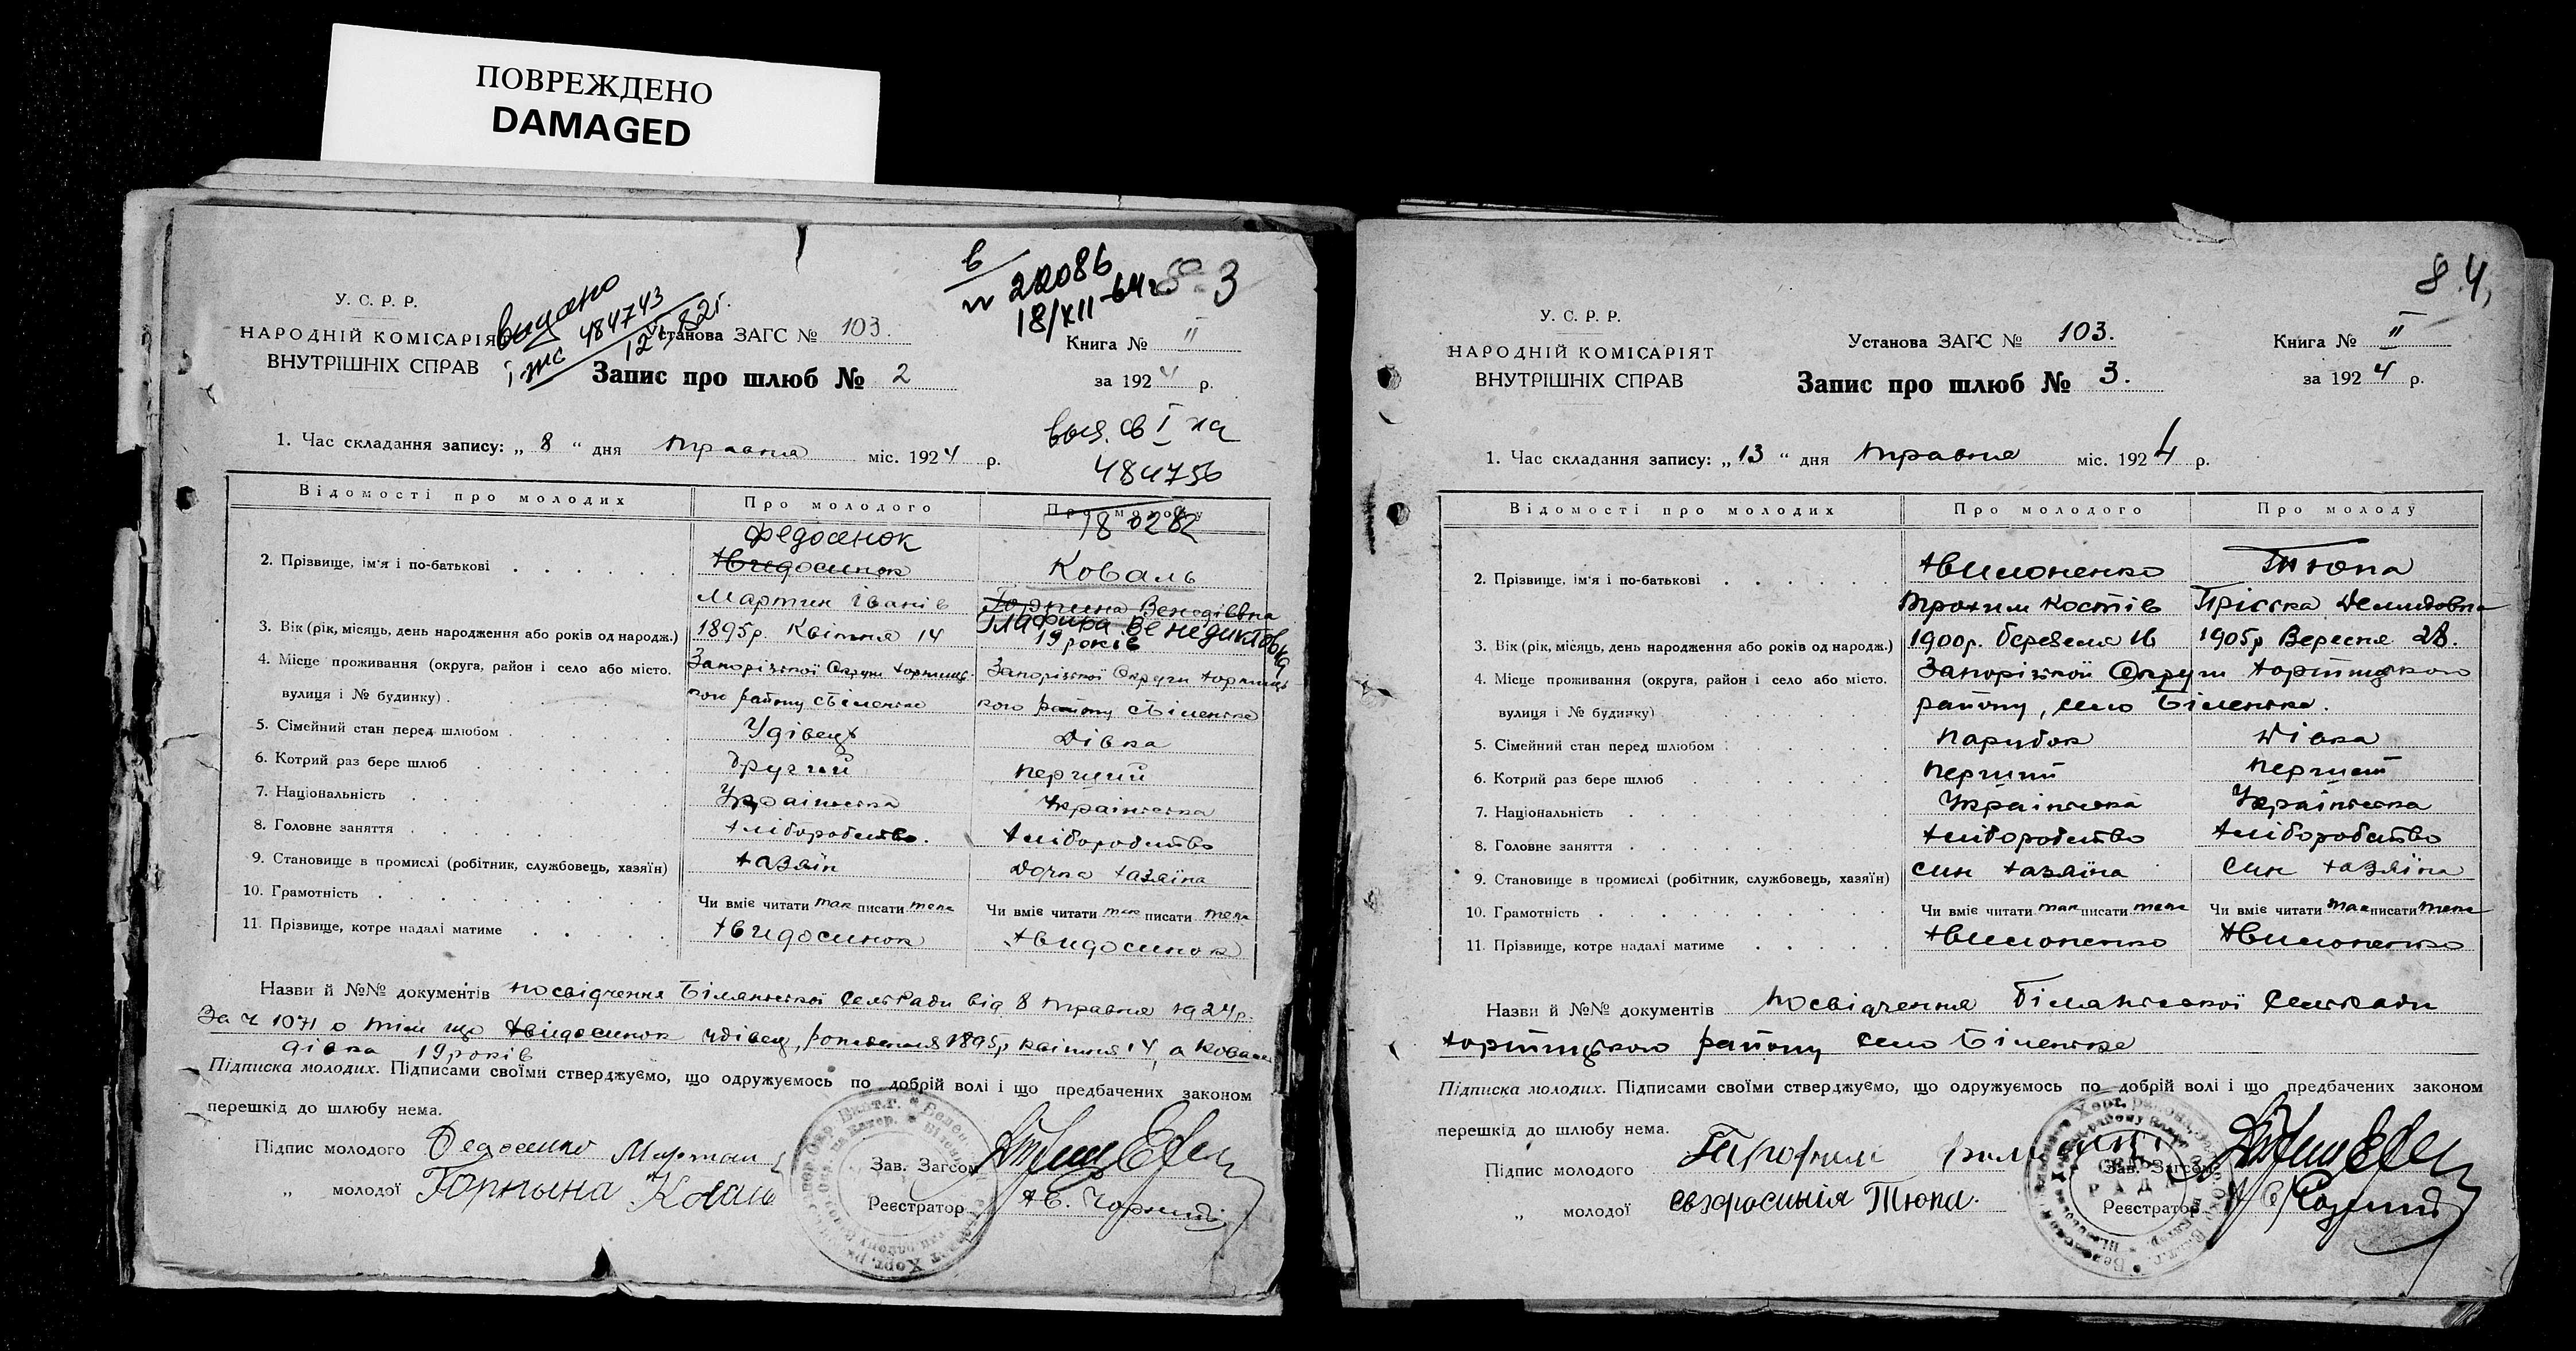 ПОВРЕЖДЕНО
DAMAGED
в
№ 22086
18/XII-64г.
3
видано
484743
У. С. Р. Р.
НАРОДНІЙ КОМІСАРІЯТ
ВНУТРІШНІХ СПРАВ
Установа ЗАГС № 103.
Книга № II
Запис про шлюб № 2
за 1924 р.
1. Час складання запису: „ 8 “ дня травня міс. 1924 р.
484756
Відомості про молодих
Про молодого
Про молоду
Федосенок
2. Прізвище, ім'я і по-батькові
Хвидосинок
Коваль
Мартин Іванів
Горпина Венедівна
Глафира Венедиктовна
3. Вік (рік, місяць, день народження або років од народж.)
1895р. Квітня 14
19 років
4. Місце проживання (округа, район і село або місто.
вулиця і № будинку)
Запорізької Округи Хортиць-
кого району с Біленьке
Запорізької Округи Хортиць
кого району с Біленьке
5. Сімейний стан перед шлюбом
Удівець
Дівка
6. Котрий раз бере шлюб
Другий
перший
7. Національність
Українська
Українська
8. Головне заняття
Хліборобство.
Хліборобство
9. Становище в промислі (робітник, службовець, хазяїн)
Хазяїн
Дочка Хазяїна
10. Грамотність
Чи вміє читати так писати теж
Чи вміє читати так писати теж
11. Прізвище, котре надалі матиме
Хвидосинок
Хвидосинок
Назви й №№ документів посвідчення Білянської СельРади від 8 травня 1924р.
За ч 1071 о тім що Хвидосинок удівец, 1895р квітня 14, а Коваль
дівка 19 років
Підписка молодих. Підписами своїми стверджуємо, що одружуємось по добрій волі і що предбачених законом
перешкід до шлюбу нема.
Підпис молодого Федосенко Мартин
„ молодої Горпына Коваль
Зав. Загсом
Реєстратор
8 4,
У. С. Р. Р.
НАРОДНІЙ КОМІСАРІЯТ
ВНУТРІШНІХ СПРАВ
Установа ЗАГС № 103.
Книга № II
Запис про шлюб № 3.
за 1924 р.
1. Час складання запису: „ 13 “ дня травня міс. 1924 р.
Відомості про молодих
Про молодого
Про молоду
2. Прізвище, ім'я і по-батькові
Хвилоненко
Тюпа
Трохим Костів
Пріська Демидовна
3. Вік (рік, місяць, день народження або років од народж.)
1900р. березеля 16
1905р Вересня 28.
4. Місце проживання (округа, район і село або місто.
вулиця і № будинку)
Запорізької Округи Хортицького
району, село Біленьке.
5. Сімейний стан перед шлюбом
Парубок
Дівка
6. Котрий раз бере шлюб
перший
перший
7. Національність
Українська
Українська
8. Головне заняття
Хліборобство
Хліборобство
9. Становище в промислі (робітник, службовець, хазяїн)
син Хазяїна
син Хазяїна
10. Грамотність
Чи вміє читати так писати теж
Чи вміє читати так писати теж
11. Прізвище, котре надалі матиме
Хвилоненко
Хвилоненко
Назви й №№ документів посвідчення Білянської Сельради
Хортицького району село Біленьке
Підписка молодих. Підписами своїми стверджуємо, що одружуємось по добрій волі і що предбачених законом
перешкід до шлюбу нема.
Підпис молодого Трофим
„ молодої Ефросиния Тюпа.
СЕЛЬ
РАДА
Зав. Загсом
Реєстратор